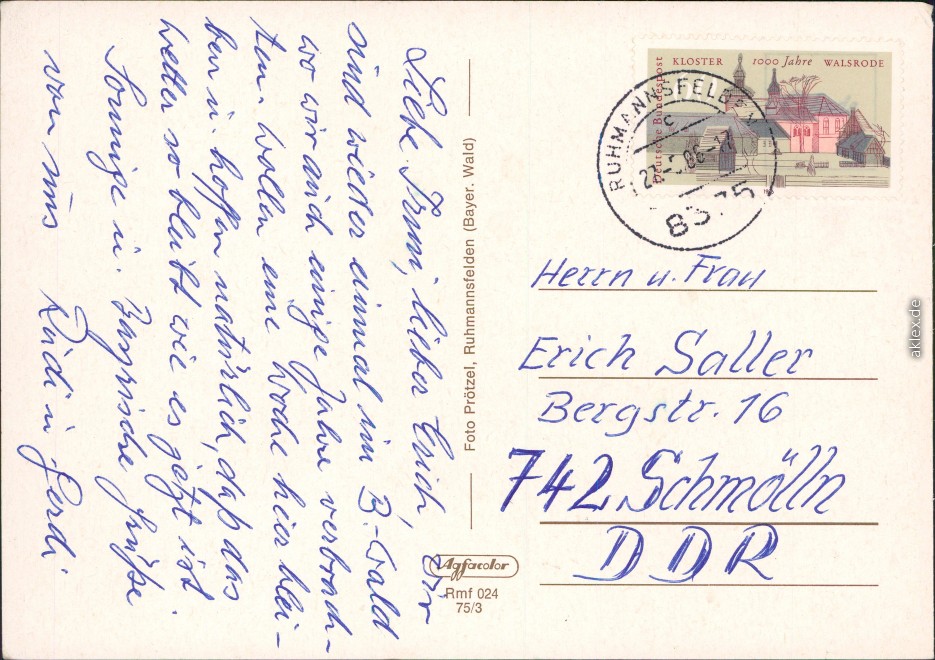 Liebe Irmi, lieber Erich, Wir
sind wieder einmal im B.-Wald
wo wir auch einige Jahre verbrach-
ten. Wollen eine Woche hier blei-
ben u. hoffen natürlich, daß das
Wetter so bleibt wie es jetzt ist
Sonnige u. Bayrische Grüße
von uns Rudi u. Gerdi
Foto Prötzel, Ruhmannsfelden (Bayer. Wald)
Agfacolor
Rmf 024
75/3
Deutsche Bundespost
KLOSTER 1000 Jahre WALSRODE
RUHMANNSFELDEN
c
8375
Herrn u. Frau
Erich Saller
Bergstr. 16
742 Schmölln
DDR
aklex.de